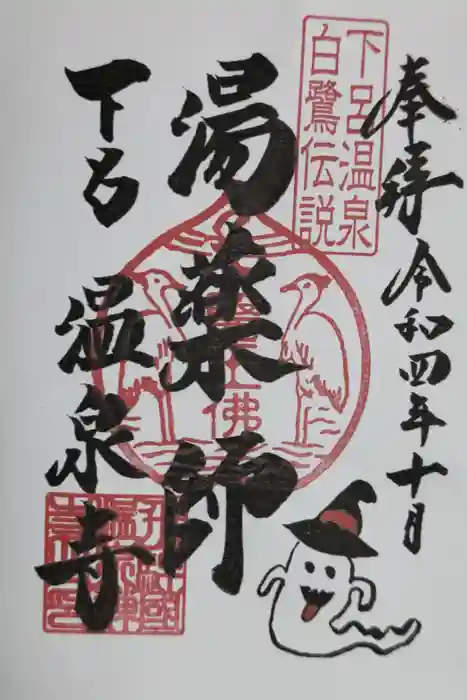 奉拝 令和四年十月
下呂温泉
白鷺伝説
湯薬師
下呂 温泉寺